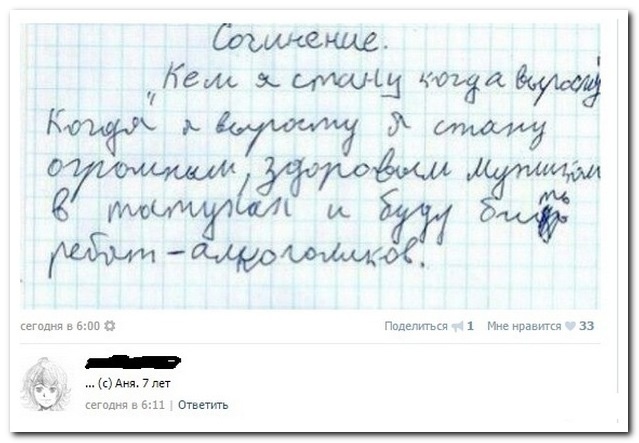 Сочинение.
"Кем я стану когда вырасту
Когда я вырасту я стану
огромным, здоровым мужиком
в татухах и буду бить
ребят-алкоголиков.
сегодня в 6:00
Поделиться 1 Мне нравится 33
... (с) Аня. 7 лет
сегодня в 6:11 | Ответить